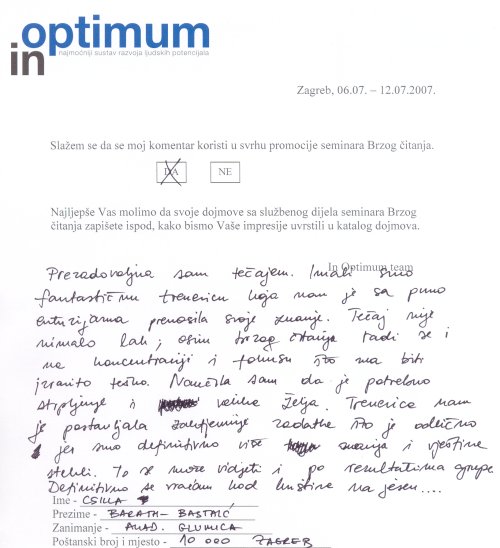 optimum
in
najmoćniji sustav razvoja ljudskih potencijala
Zagreb, 06.07. – 12.07.2007.
Slažem se da se moj komentar koristi u svrhu promocije seminara Brzog čitanja.
DA NE
Najljepše Vas molimo da svoje dojmove sa službenog dijela seminara Brzog
čitanja zapišete ispod, kako bismo Vaše impresije uvrstili u katalog dojmova.
In Optimum team
Prezadovoljna sam tečajem. Imali smo
fantastičnu trenericu koja nam je sa puno
entuzijazma prenosila svoje znanje. Tečaj nije
nimalo lak; osim brzog čitanja radi se i
na koncentraciji i fokusu što zna biti
izrazito teško. Naučila sam da je potrebno
strpljenje i velika želja. Trenerica nam
je postavljala zahtjevnije zadatke što je odlično
jer smo definitivno više znanja i vještine
stekli. To se može vidjeti i po rezultatima grupe.
Definitivno se vraćam kod Kristine na jesen....
Ime - CSILLA
Prezime - BARATH-BASTAIĆ
Zanimanje - AKAD. GLUMICA
Poštanski broj i mjesto - 10 000 ZAGREB